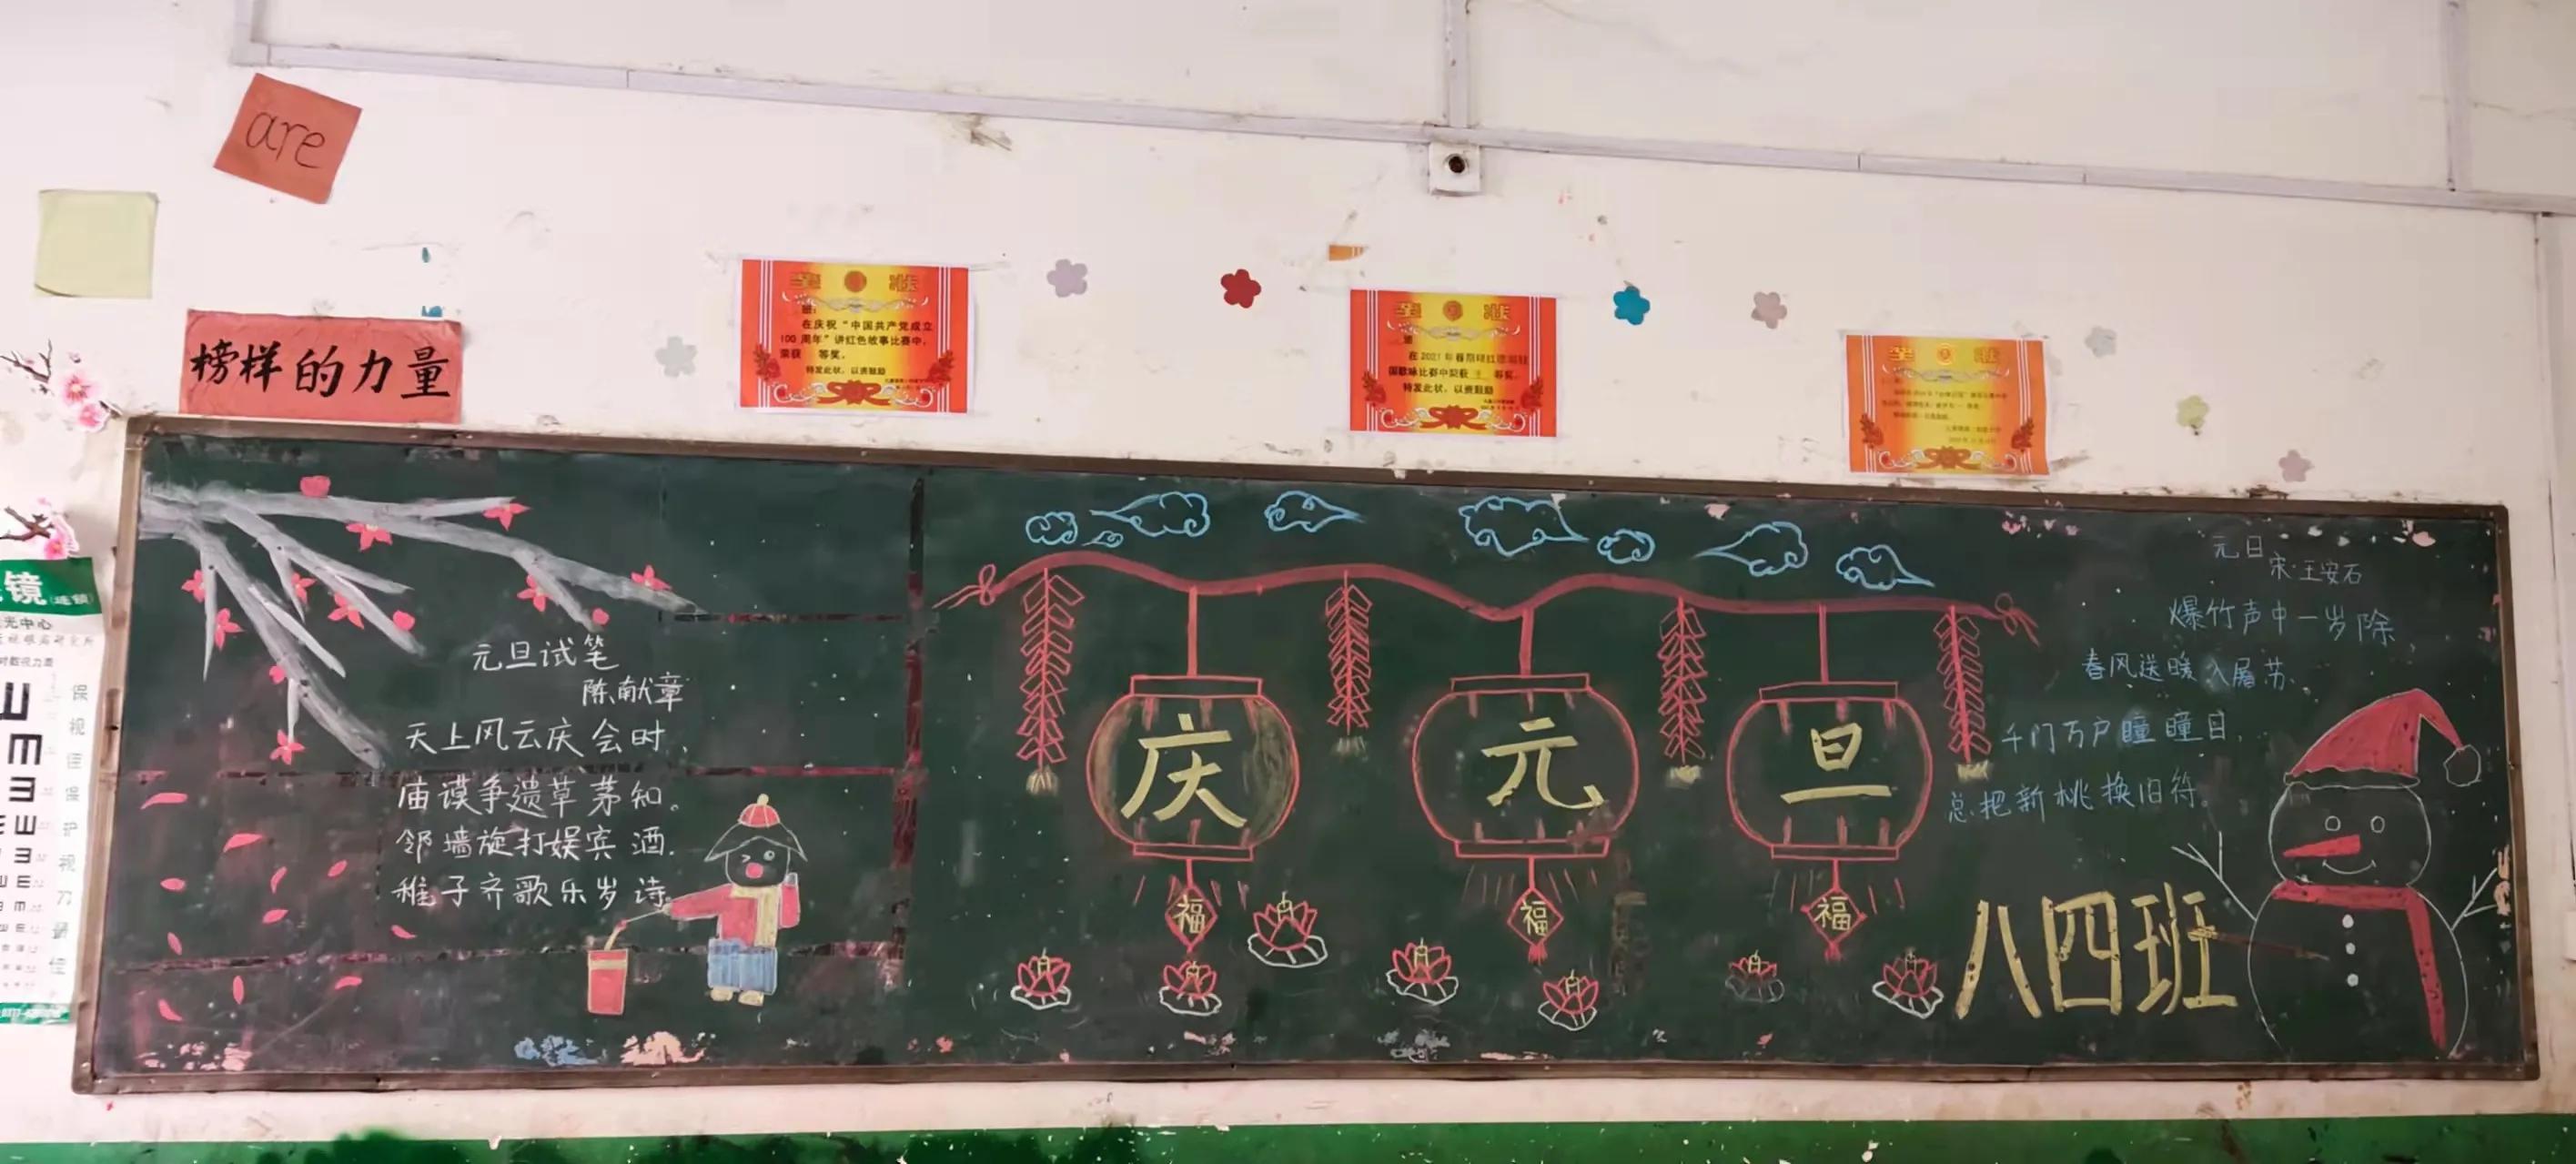 are
榜样的力量
奖 状
班:
在庆祝“中国共产党成立
100 周年”讲红色故事比赛中,
荣获 等奖。
特发此状,以资鼓励
奖 状
班
在 2021 年春期
国歌咏比赛中荣获 等奖。
特发此状,以资鼓励
奖 状
元旦试笔
陈献章
天上风云庆会时、
庙谟争遗草茅知。
邻墙旋打娱宾酒.
稚子齐歌乐岁诗
庆 元 旦
福 福 福
元日
宋·王安石
爆竹声中一岁除
春风送暖入屠苏.
千门万户瞳瞳日,
总把新桃换旧符。
八四班
镜
光中心